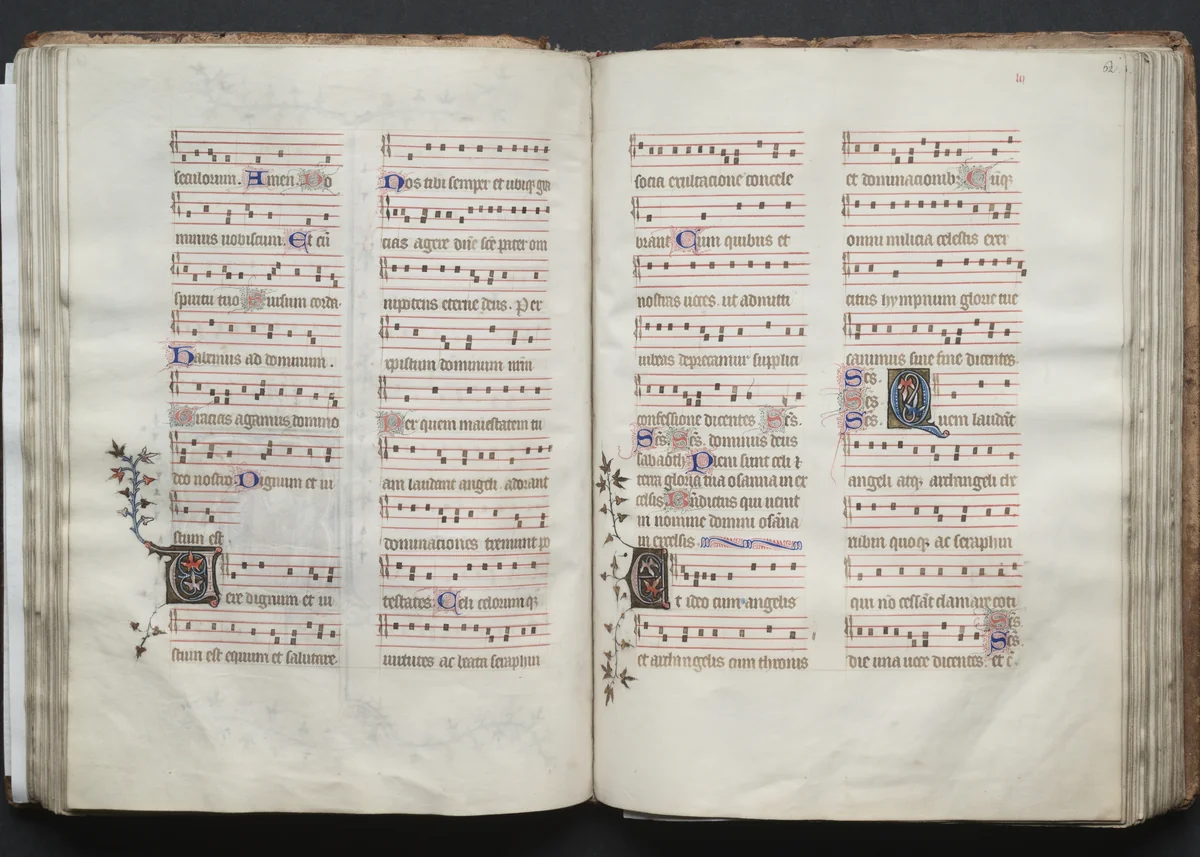 seculorum. Amen. Do
minus vobiscum. Et cu
spiritu tuo Sursum corda.
habemus ad dominum.
Gracias agamus domino
deo nostro. Dignum et iu
stum est
Uere dignum et iu
stum est equum et salutare.
Nos tibi semper et ubiqz gra
cias agere dne sce pater om
nipotens eterne deus. Per
xpistum dominum nrm
Per quem maiestatem tu
am laudant angeli. adorant
dominaciones tremunt po
testates. Celi celorum qz
uirtutes ac beata seraphin
62
socia exultacione concele
brant Cum quibus et
nostras uoces. ut admitti
iubeas deprecamur supplici
confessione dicentes. Scs.
Scs Scs. dominus deus
sabaoth. Pleni sunt celi et
terra gloria tua osanna in ex
celsis. Bndictus qui uenit
in nomine domini osana
in excelsis.
Et ideo cum angelis
et archangelis cum thronis
et dominacionibz. Cumqz
omni milicia celestis exer
citus hympnum glorie tue
canimus sine fine dicentes.
Scs.
Scs
Scs. Quem laudant
angeli atqz archangeli che
rubin quoqz ac seraphin
qui no cessat clamare coti
Scs
die una uoce dicentes. Scs. et c.